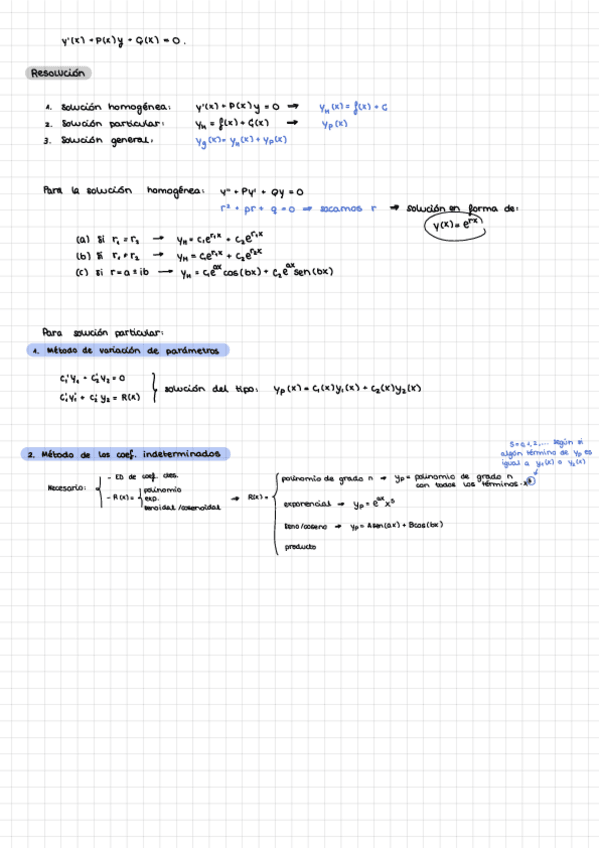 y'(x) + P(x)y + Q(x) = 0.
Resolución
1. Solución homogénea: y'(x) + P(x)y = 0 → y_H(x) = f(x) + C
2. Solución particular: y_H = f(x) + C(x) → y_P(x)
3. Solución general: y_g(x) = y_H(x) + y_P(x)
Para la solución homogénea: y'' + Py' + Qy = 0
r² + pr + q = 0 → sacamos r → solución en forma de:
y(x) = e^{rx}
(a) si r₁ = r₂ → y_H = c₁e^{r₁x} + c₂e^{r₁x}
(b) si r₁ ≠ r₂ → y_H = c₁e^{r₁x} + c₂e^{r₂x}
(c) si r = a ± ib → y_H = c₁e^{ax}cos(bx) + c₂e^{ax}sen(bx)
Para solución particular:
1. Método de variación de parámetros
c₁'y₁ + c₂'y₂ = 0
c₁'y₁' + c₂'y₂ = R(x)
solución del tipo: y_P(x) = c₁(x)y₁(x) + c₂(x)y₂(x)
2. Método de los coef. indeterminados
s = 0, 1, 2, ... según si
algún término de y_P es
igual a y₁(x) o y₂(x)
Necesario:
- ED de coef. ctes.
- R(x) =
polinomio
exp.
senoidal/cosenoidal
→ R(x) =
polinomio de grado n → y_P = polinomio de grado n
con todos los términos · x^s
exponencial → y_P = e^{ax} x^s
seno/coseno → y_P = A sen(ax) + B cos(bx)
producto